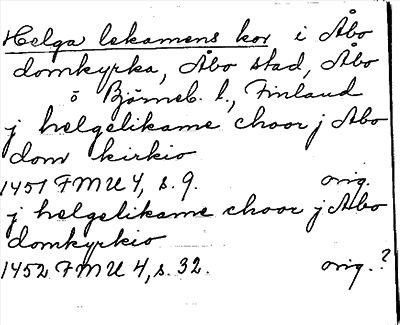 Helga lekamens kor i Åbo
domkyrka, Åbo stad, Åbo
o Björneb. l., Finland
j helgelikame choor j Åbo
dom kirkio
1451 FMU 4, s. 9. orig.
j helgelikame choor j Åbo
domkyrkio
1452 FMU 4, s. 32. orig.?